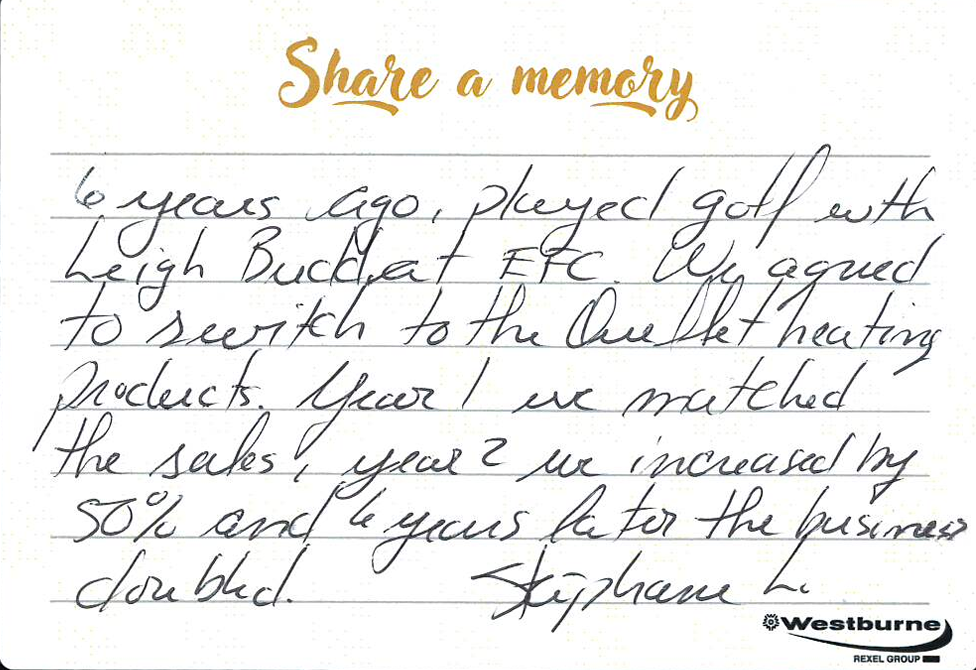 Share a memory
6 years ago, played golf with
Leigh Budd at EFC. We agreed
to switch to the Ouellet heating
products. Year 1 we matched
the sales, year 2 we increased by
50% and 6 years later the business
doubled. Stéphane L.
Westburne
REXEL GROUP